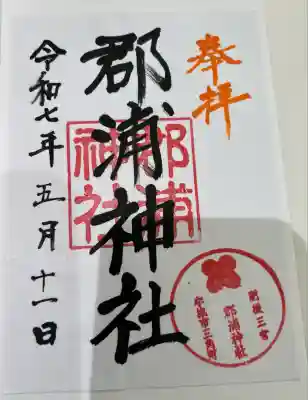 奉拝
郡浦神社
令和七年五月十一日
郡浦
神社
肥後三宮
郡浦神社
宇城市三角町